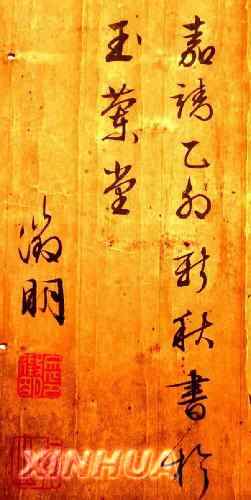 嘉靖乙卯新秋書於
玉蘭堂
徵明
XINHUA